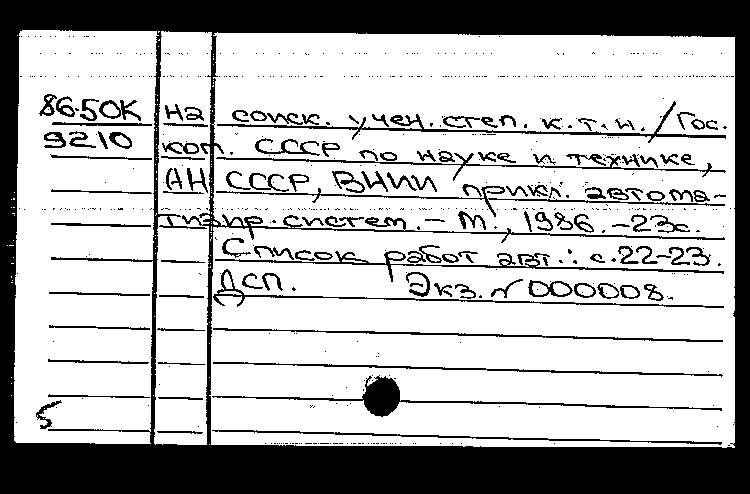 86-50К на соиск. учен. степ. к.т.н. / Гос.
9210 ком. СССР по науке и технике,
АН СССР, ВНИИ прикл. автома-
тизир. систем. – М., 1986. – 23с.
Список работ авт.: с.22-23.
ДСП. Экз. № 000008.
5